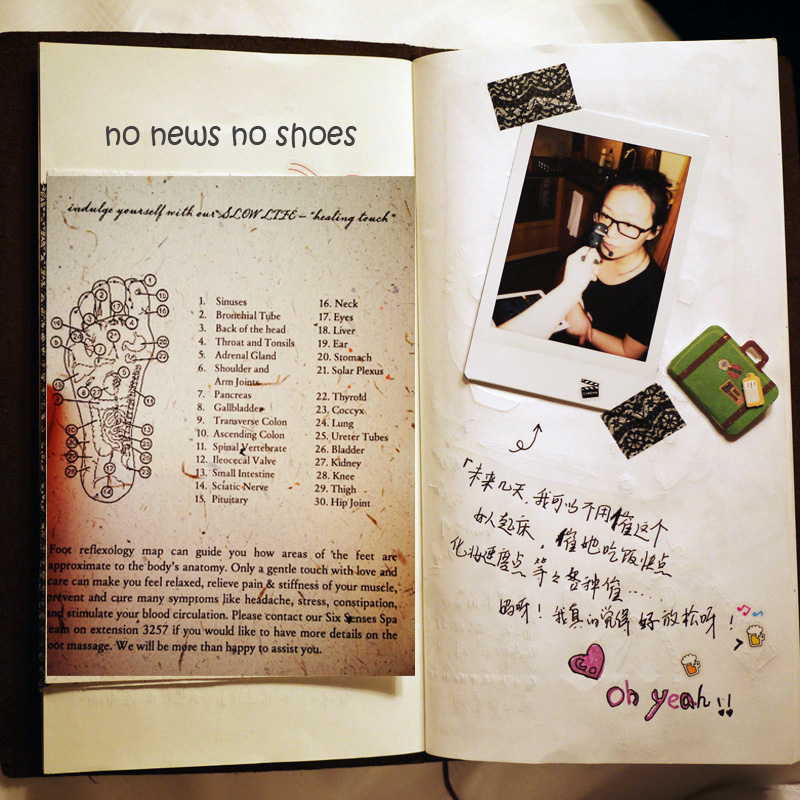 no news no shoes
indulge yourself with our SLOW LIFE – "healing touch"
1. Sinuses
2. Bronchial Tube
3. Back of the head
4. Throat and Tonsils
5. Adrenal Gland
6. Shoulder and
Arm Joints
7. Pancreas
8. Gallbladder
9. Transverse Colon
10. Ascending Colon
11. Spinal Vertebrate
12. Ileocecal Valve
13. Small Intestine
14. Sciatic Nerve
15. Pituitary
16. Neck
17. Eyes
18. Liver
19. Ear
20. Stomach
21. Solar Plexus
22. Thyroid
23. Coccyx
24. Lung
25. Ureter Tubes
26. Bladder
27. Kidney
28. Knee
29. Thigh
30. Hip Joint
Foot reflexology map can guide you how areas of the feet are
approximate to the body's anatomy. Only a gentle touch with love and
care can make you feel relaxed, relieve pain & stiffness of your muscle,
prevent and cure many symptoms like headache, stress, constipation,
and stimulate your blood circulation. Please contact our Six Senses Spa
team on extension 3257 if you would like to have more details on the
foot massage. We will be more than happy to assist you.
「未来几天,我可以不用催这个
女人起床,催她吃饭快点
化妆速度点 等々各种催……
妈呀!我真的觉得好放松呀!
oh yeah!!